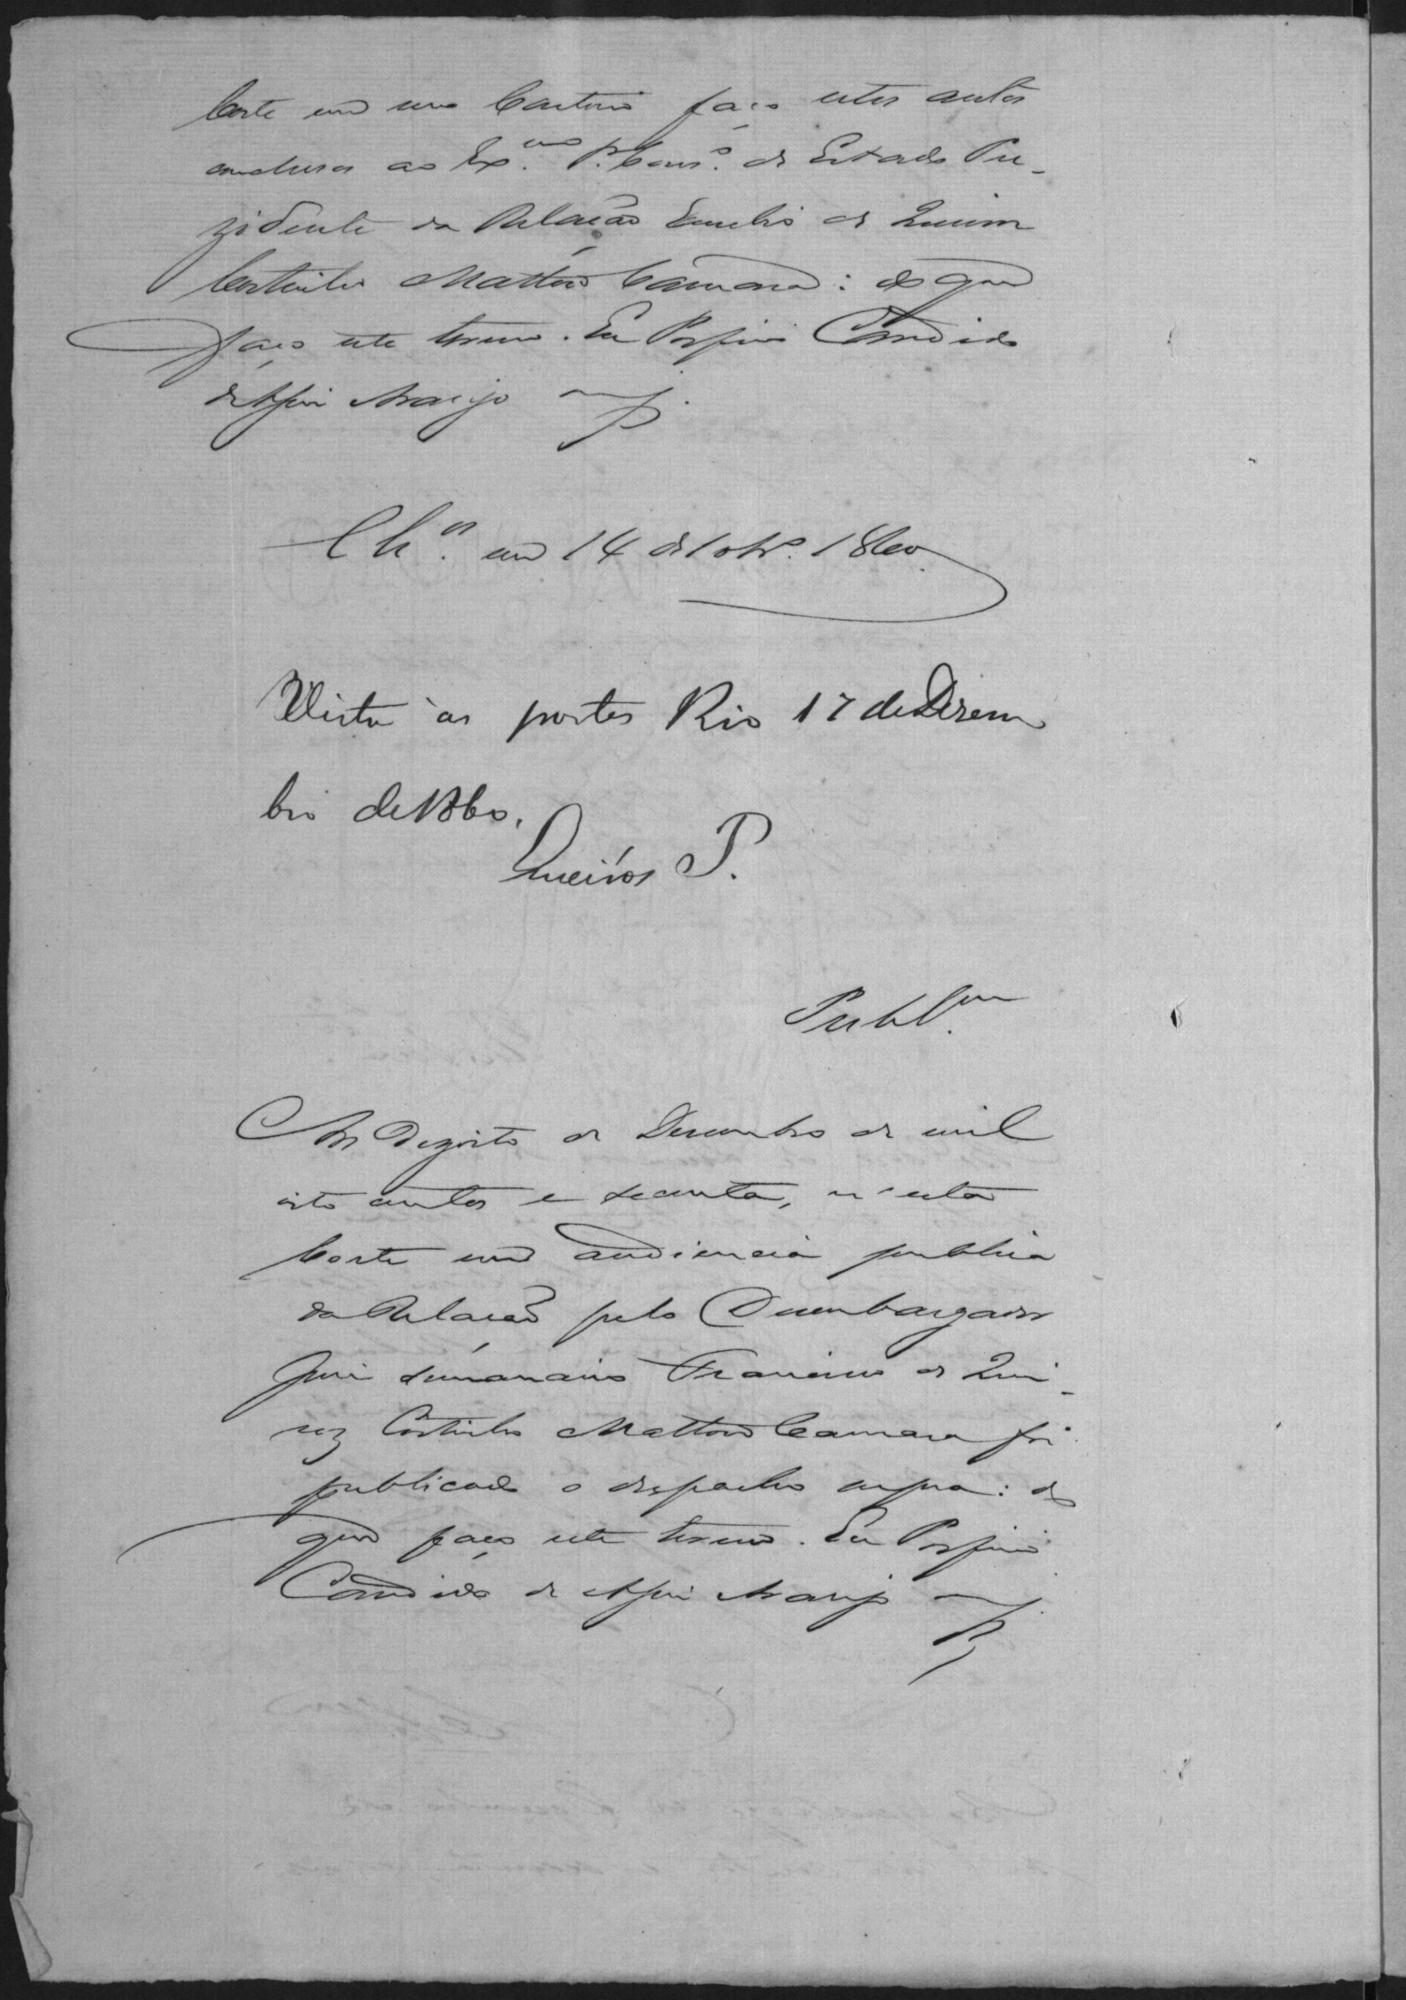 Corte em meu Cartorio faço estes autos
conclusos ao Ex.mo Cons.o de Estado Pre-
zidente da Relação Euzebio de Queiroz
Coutinho Mattoso Camara: do que
faço este termo. Eu Porfirio Candido
de Assis Araujo
Cls. em 14 de 10br.o 1860.
Vista ás partes Rio 17 de Dezem
bro de 1860.
Queirós P.
Publ.am
Aos dezoito de Dezembro de mil
oito centos e secenta, n'esta
Corte em audiencia publica
da Relação pelo Dezembargador
Juiz semanario Francisco de Quei-
roz Coutinho Mattoso Camara foi
publicado o despacho supra: do
que faço este termo. Eu Porfirio
Candido de Assis Araujo